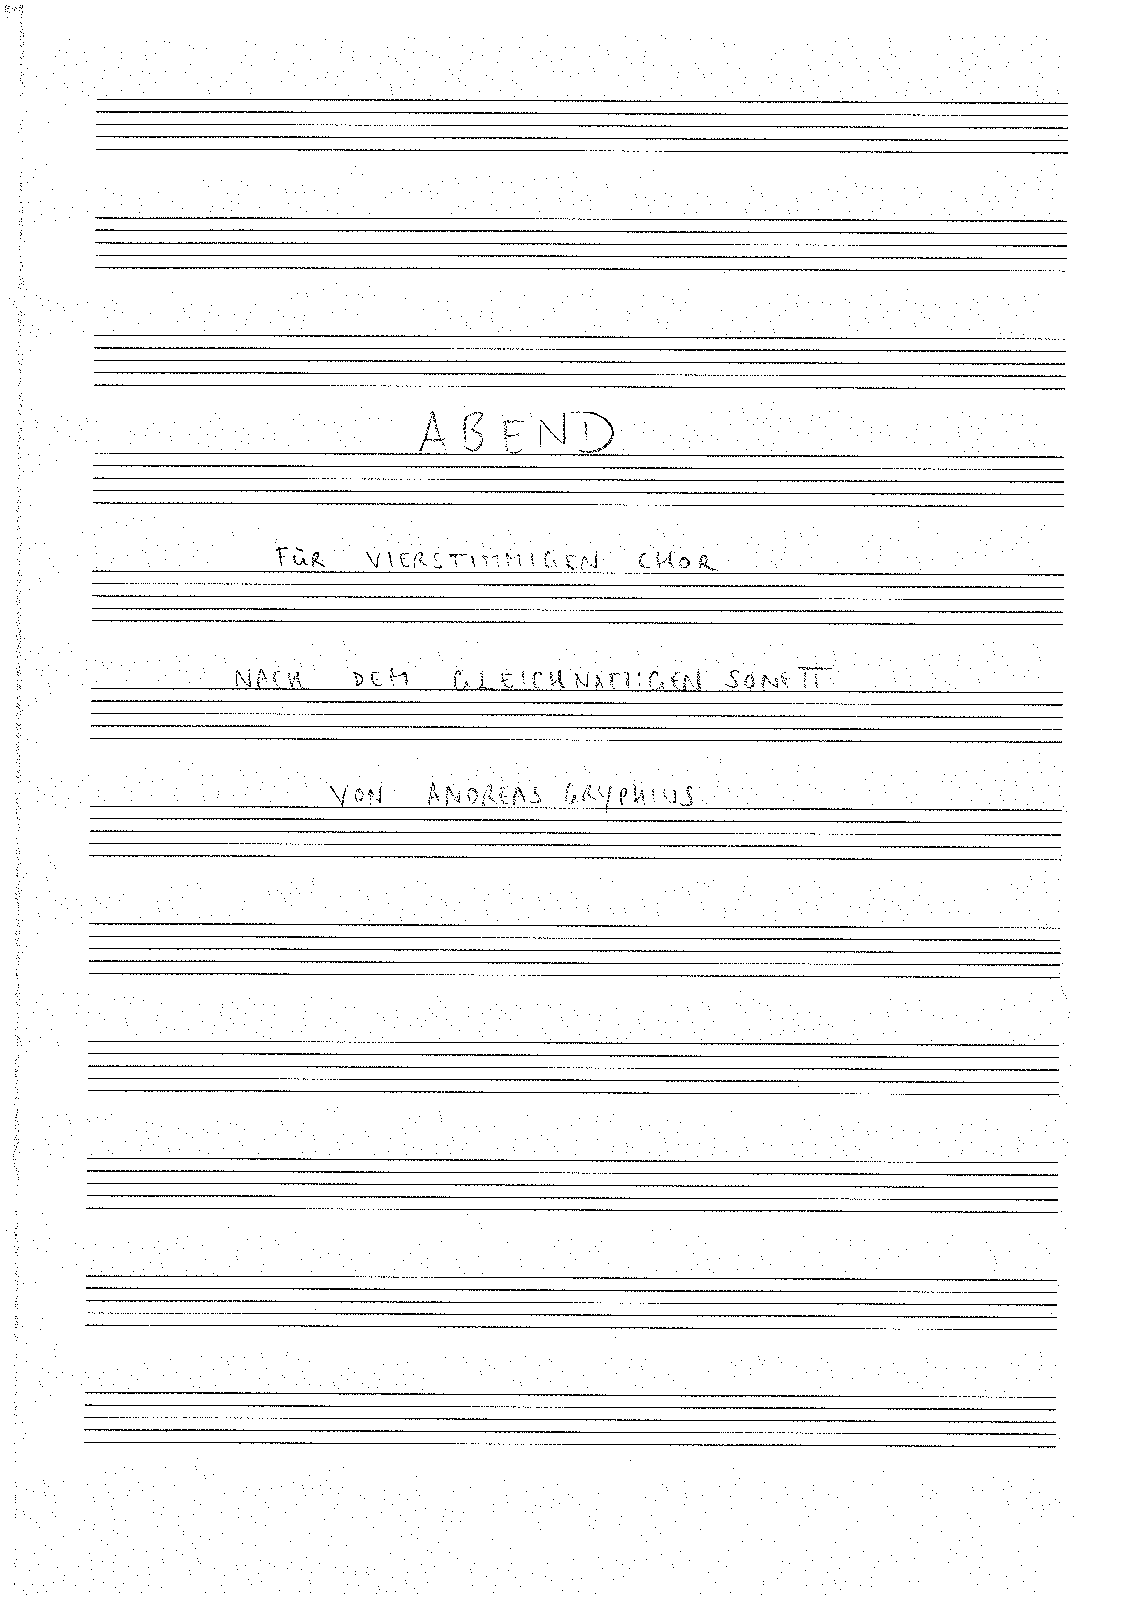 ABEND
FÜR VIERSTIMMIGEN CHOR
NACH DEM GLEICHNAMIGEN SONETT
VON ANDREAS GRYPHIUS